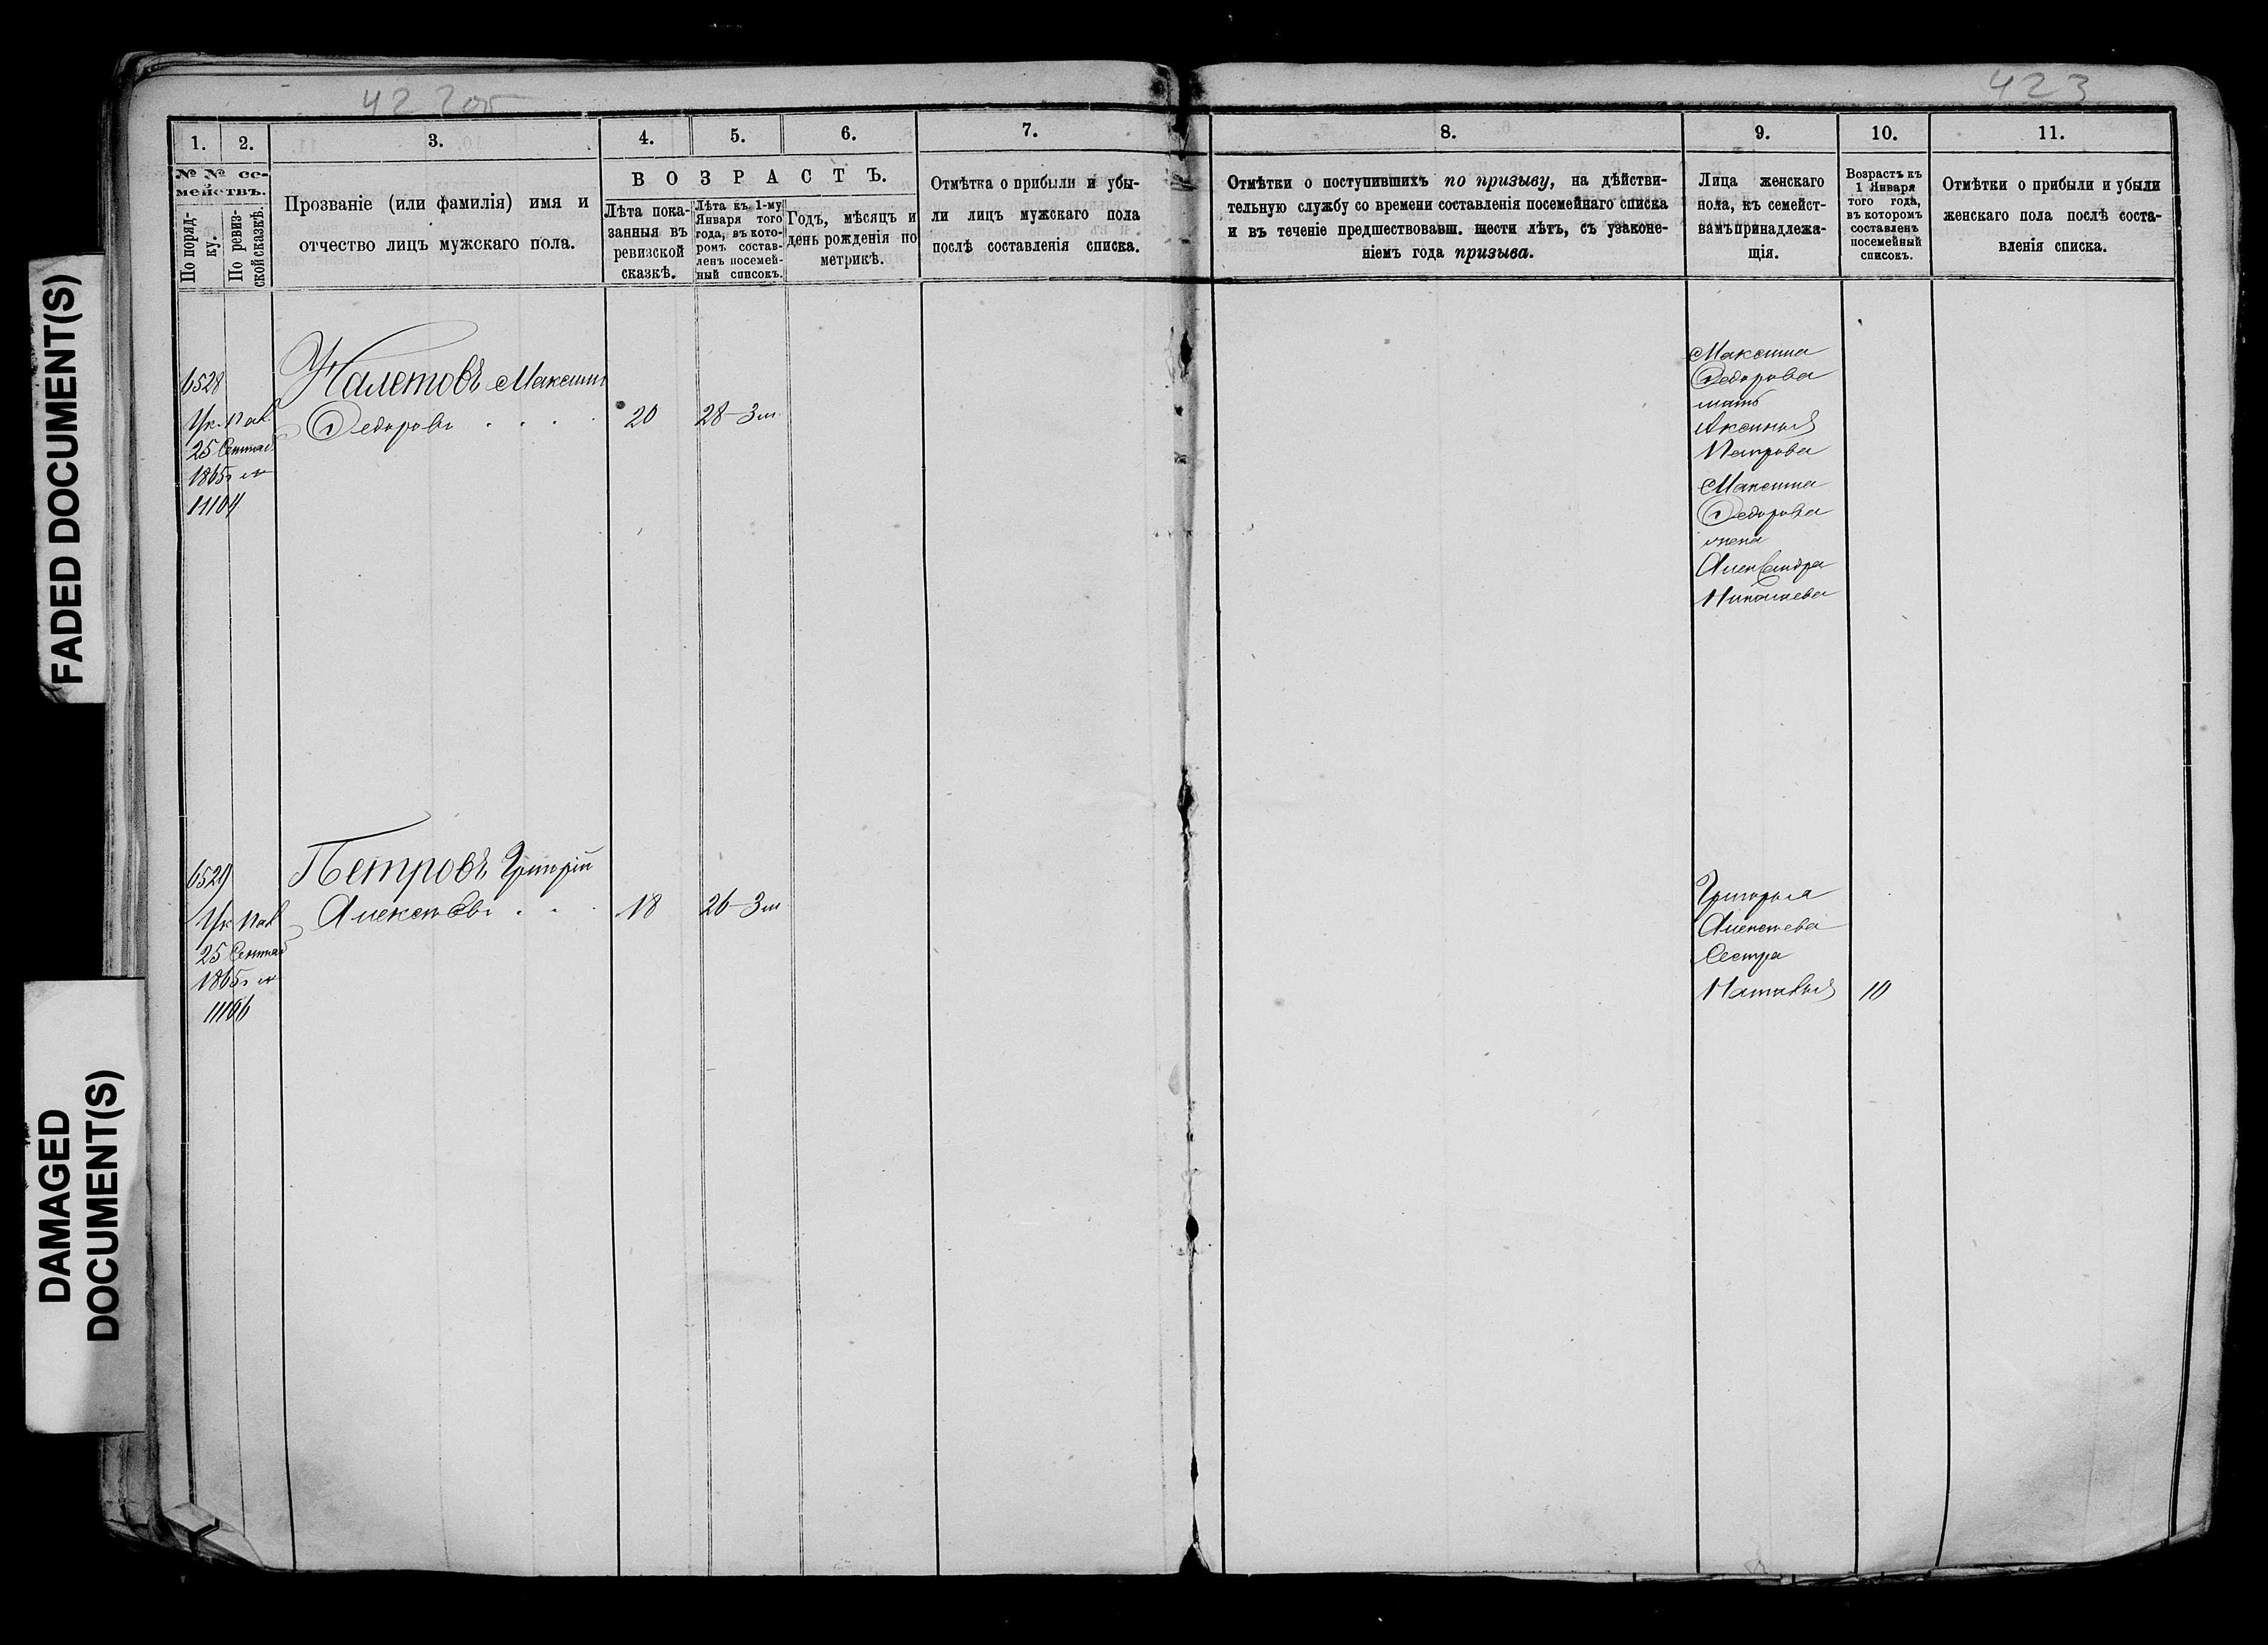 422об
423
1.
2.
3.
4.
5.
6.
7.
8.
9.
10.
11.
№ № се-
мействъ.
По поряд-
ку.
По ревиз-
ской сказкѣ.
Прозваніе (или фамилія) имя и
отчество лицъ мужскаго пола.
ВОЗРАСТЪ.
Лѣта пока-
занныя въ
ревизской
сказкѣ.
Лѣта къ 1-му
Января того
года, въ кото-
ромъ состав-
ленъ посемей-
ный списокъ.
Годъ, мѣсяцъ и
день рожденія по
метрикѣ.
Отмѣтка о прибыли и убы-
ли лицъ мужскаго пола
послѣ составленія списка.
Отмѣтки о поступившихъ по призыву, на дѣйстви-
тельную службу со времени составленія посемейнаго списка
и въ теченіе предшествовавш. шести лѣтъ, съ узаконе-
ніемъ года призыва.
Лица женскаго
пола, къ семейст-
вамъ принадлежа-
щія.
Возрастъ къ
1 Января
того года,
въ которомъ
составленъ
посемейный
списокъ.
Отмѣтки о прибыли и убыли
женскаго пола послѣ соста-
вленія списка.
6528
Ук. Пал.
25 Сентяб
1865г №
11104
Налетовъ Максимъ
Ѳедоровъ . . . .
20
28-3м
Максима
Ѳедорова
мать
Аксинья
Петрова
Максима
Ѳедорова
жена
Александра
6529
Ук Пал
25 Сентяб
1865г №
11106
Петровъ Григорій
Алексѣевъ . . .
18
26-3м
Григорья
Алексѣева
Сестра
Наталья
10
FADED DOCUMENT(S)
DAMAGED
DOCUMENT(S)